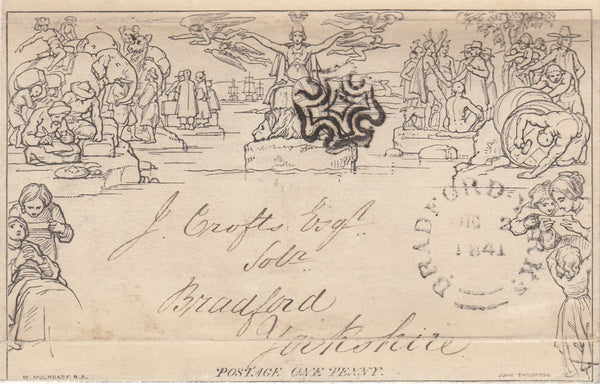 J. Crofts Esqr.
Solr
Bradford
Yorkshire
BRADFORD-YORKS.
DE 2
1841
POSTAGE ONE PENNY.
W. MULREADY, R.A.
JOHN THOMPSON